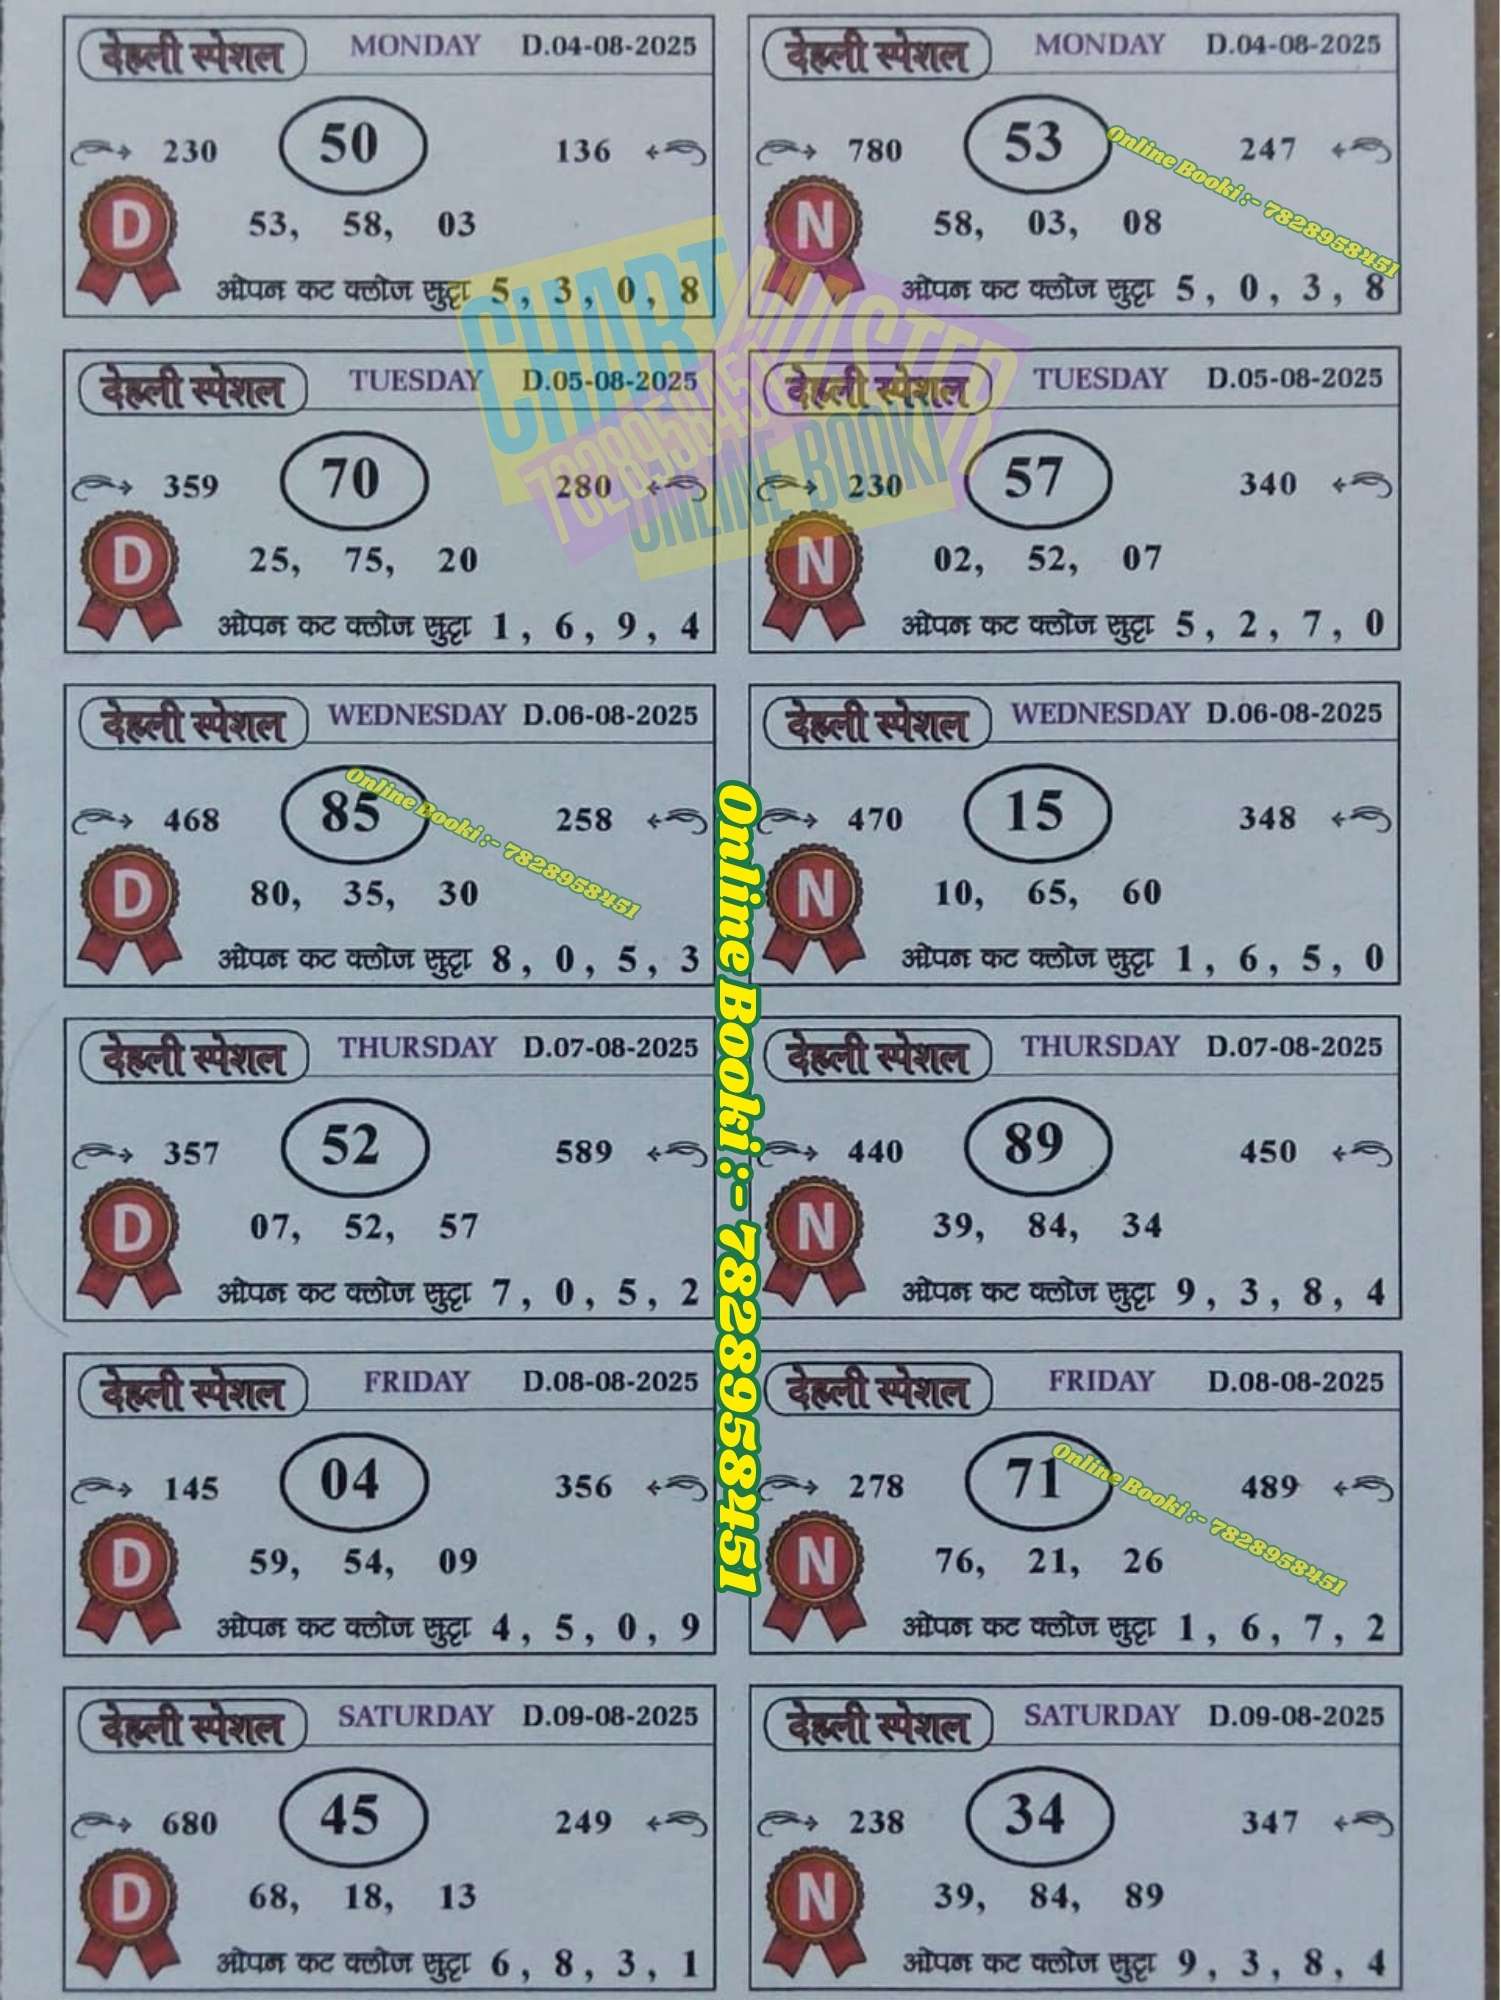 देहली स्पेशल MONDAY D.04-08-2025
230 50 136
D 53, 58, 03
ओपन कट क्लोज सुट्टा 5 , 3 , 0 , 8
देहली स्पेशल MONDAY D.04-08-2025
780 53 247
N 58, 03, 08
ओपन कट क्लोज सुट्टा 5 , 0 , 3 , 8
Online Booki :- 7828958451
CHART MASTER
7828958451
ONLINE BOOKI
देहली स्पेशल TUESDAY D.05-08-2025
359 70 280
D 25, 75, 20
ओपन कट क्लोज सुट्टा 1 , 6 , 9 , 4
देहली स्पेशल TUESDAY D.05-08-2025
230 57 340
N 02, 52, 07
ओपन कट क्लोज सुट्टा 5 , 2 , 7 , 0
देहली स्पेशल WEDNESDAY D.06-08-2025
468 85 258
D 80, 35, 30
ओपन कट क्लोज सुट्टा 8 , 0 , 5 , 3
Online Booki :- 7828958451
देहली स्पेशल WEDNESDAY D.06-08-2025
470 15 348
N 10, 65, 60
ओपन कट क्लोज सुट्टा 1 , 6 , 5 , 0
Online Booki :- 7828958451
देहली स्पेशल THURSDAY D.07-08-2025
357 52 589
D 07, 52, 57
ओपन कट क्लोज सुट्टा 7 , 0 , 5 , 2
देहली स्पेशल THURSDAY D.07-08-2025
440 89 450
N 39, 84, 34
ओपन कट क्लोज सुट्टा 9 , 3 , 8 , 4
देहली स्पेशल FRIDAY D.08-08-2025
145 04 356
D 59, 54, 09
ओपन कट क्लोज सुट्टा 4 , 5 , 0 , 9
देहली स्पेशल FRIDAY D.08-08-2025
278 71 489
N 76, 21, 26
ओपन कट क्लोज सुट्टा 1 , 6 , 7 , 2
Online Booki :- 7828958451
देहली स्पेशल SATURDAY D.09-08-2025
680 45 249
D 68, 18, 13
ओपन कट क्लोज सुट्टा 6 , 8 , 3 , 1
देहली स्पेशल SATURDAY D.09-08-2025
238 34 347
N 39, 84, 89
ओपन कट क्लोज सुट्टा 9 , 3 , 8 , 4